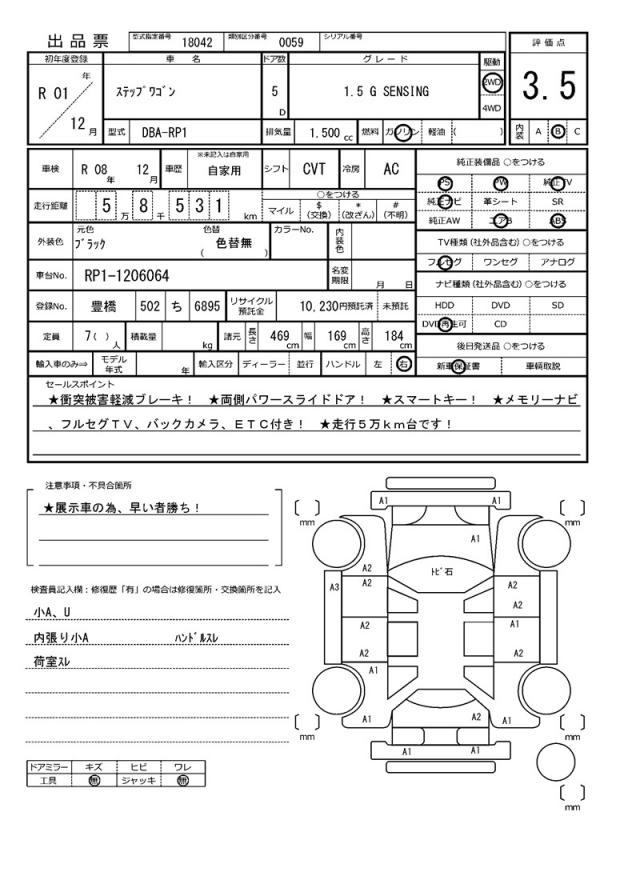 出品票 型式指定番号 18042 類別区分番号 0059 シリアル番号
評価点
3.5
内装 A B C
初年度登録 車名 ドア数 グレード 駆動
R 01 年 12 月 ステップワゴン 5 D 1.5 G SENSING 2WD 4WD
型式 DBA-RP1 排気量 1.500 cc 燃料 ガソリン 軽油 ( )
車検 R 08 年 12 月 車歴 ※未記入は自家用 自家用 シフト CVT 冷房 AC
走行距離 5 万 8 千 5 3 1 km
○をつける
マイル $ (交換) * (改ざん) # (不明)
外装色 元色 ブラック 色替 ( 色替無 ) カラーNo. 内装色
車台No. RP1-1206064 名変期限 月 日
登録No. 豊橋 502 ち 6895 リサイクル預託金 10,230円預託済 未預託
定員 7( ) 人 積載量 kg 諸元 長さ 469 cm 幅 169 cm 高さ 184 cm
輸入車のみ⇒ モデル年式 年 輸入区分 ディーラー 並行 ハンドル 左 右
純正装備品 ○をつける
PS PW 純正TV
純正ナビ 革シート SR
純正AW エアB ABS
TV種類 (社外品含む) ○をつける
フルセグ ワンセグ アナログ
ナビ種類 (社外品含む) ○をつける
HDD DVD SD
DVD再生可 CD
後日発送品 ○をつける
新車保証書 車輌取説
セールスポイント
★衝突被害軽減ブレーキ! ★両側パワースライドドア! ★スマートキー! ★メモリーナビ
、フルセグTV、バックカメラ、ETC付き! ★走行5万km台です!
注意事項・不具合箇所
★展示車の為、早い者勝ち!
検査員記入欄:修復歴「有」の場合は修復箇所・交換箇所を記入
小A、U
内張り小A ハンドルスレ
荷室スレ
ドアミラー キズ ヒビ ワレ
工具 無 ジャッキ 無
A1 A1
mm mm
A1
トビ石
A2
A3 A2 A2
A2
A2 A1
A2 A2
A1
A1 A2 A1
mm mm
A1 A1
mm